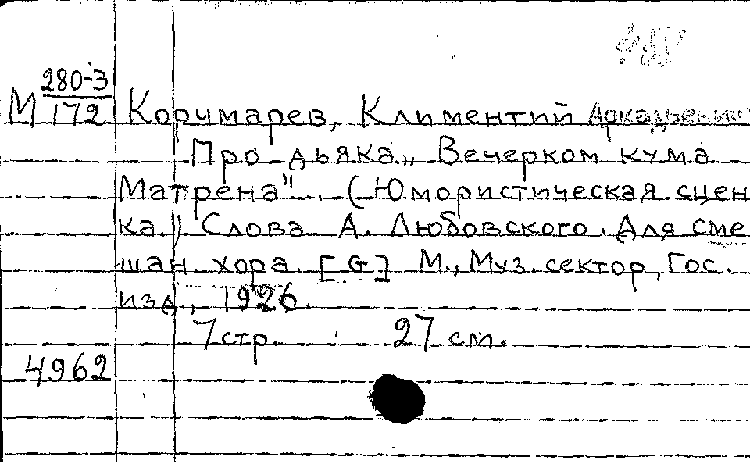 280-3
М 172 Корчмарев, Климентий Аркадьевич
Про дьяка „Вечерком кума
Матрена". (Юмористическая сцен
ка.) Слова А. Любовского. Для сме
шан. хора. [G] М., Муз. сектор, Гос.
изд., 1926.
7 стр. 27 см.
4962